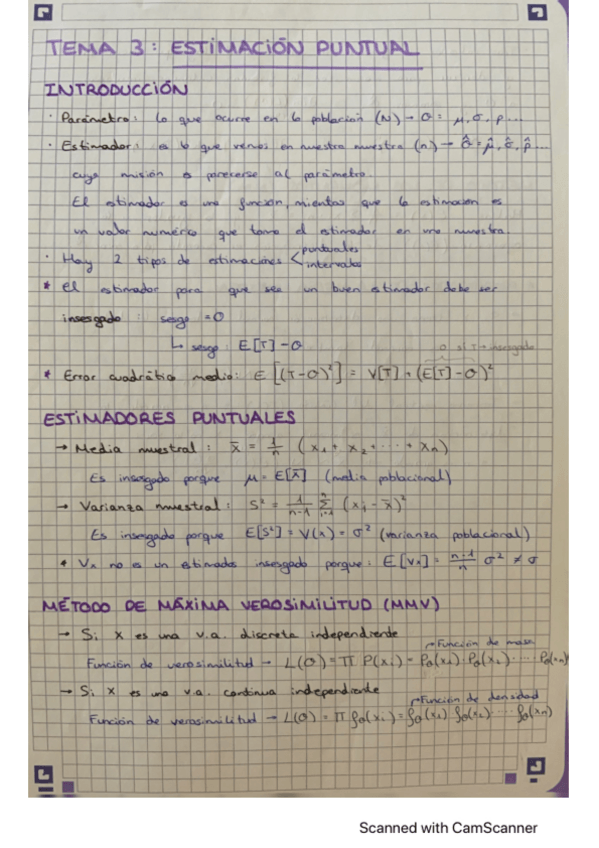 TEMA 3: ESTIMACIÓN PUNTUAL
INTRODUCCIÓN
· Parámetro: lo que ocurre en la población (N) → θ = μ, σ, p...
· Estimador: es lo que vemos en nuestra muestra (n) → θ̂ = μ̂, σ̂, p̂...
cuya misión es parecerse al parámetro.
El estimador es una función, mientas que la estimación es
un valor numérico que toma el estimador en una muestra.
· Hay 2 tipos de estimaciones < puntuales
intervalos
* el estimador para que sea un buen estimador debe ser
insesgado: sesgo = 0
↳ sesgo: E[T] - θ
0 si T → insesgado
* Error cuadrático medio: E[(T-θ)²] = V[T] + (E[T]-θ)²
ESTIMADORES PUNTUALES
→ Media muestral: x̄ = 1/n (x₁ + x₂ + ··· + xₙ)
Es insesgado porque μ = E[x̄] (media poblacional)
→ Varianza muestral: S² = 1/(n-1) Σᵢ₌₁ⁿ (xᵢ - x̄)²
Es insesgado porque E[S²] = V(x) = σ² (varianza poblacional)
* Vx no es un estimador insesgado porque: E[Vx] = (n-1)/n σ² ≠ σ
MÉTODO DE MÁXIMA VEROSIMILITUD (MMV)
→ Si X es una v.a. discreta independiente
→ Función de masa
Función de verosimilitud → L(θ) = Π P(xᵢ) = Pθ(x₁)·Pθ(x₂)·...·Pθ(xₙ)
→ Si X es una v.a. continua independiente
→ Función de densidad
Función de verosimilitud → L(θ) = Π fθ(xᵢ) = fθ(x₁)·fθ(x₂)·...·fθ(xₙ)
Scanned with CamScanner